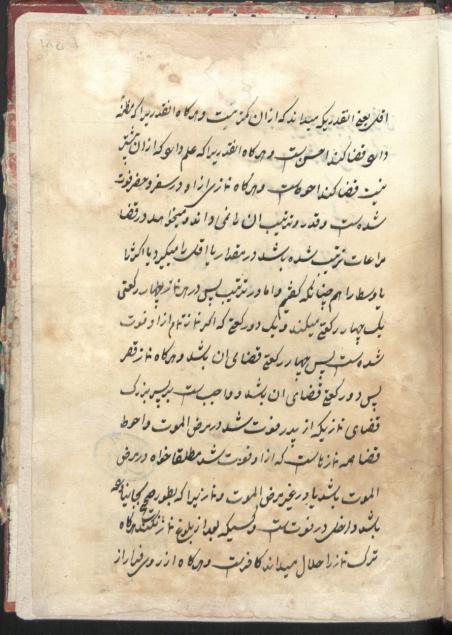 اقل یعنی آنقدریکه میداند که از ان کمتر نیست و هرکاه انقدریرا که مظنه
دارد قضا کند احسن است و هرکاه انقدریرا که علم دارد که از ان بیشتر
نیست قضا کند احوط است و هرکاه نمازی از او در سفر و حضر فوت
شده است و قدر و ترتیب ان را نمی داند و میخواهد در قضا
مراعات ترتیب شده باشد در مقدار یا اقل را میگیرد یا اکثر را
یا وسط را هم چنانکه کفتیم و اما در ترتیب پس در هر نماز چهار رکعتی
یک چهار رکعتی میکند و یک دو رکعتی که اگر نماز تمام از او فوت
شده است پس چهار رکعتی قضای ان باشد و هرکاه نماز قصر
پس دو رکعتی قضای ان باشد و واجب است بر پسر بزرک
قضای نمازیکه از پدر فوت شد در مرض الموت و احوط
قضا همه نمازهاست که از او فوت شد مطلقا خواه در مرض
الموت باشد یا در غیر مرض الموت و نمازیرا که بطور صحیح بجا نیاورده
باشد داخل در فوت است و کسیکه بعد از بلوغ نماز نکند هرکاه
ترک نماز را حلال میداند کافر است و هرکاه از روی قرار از